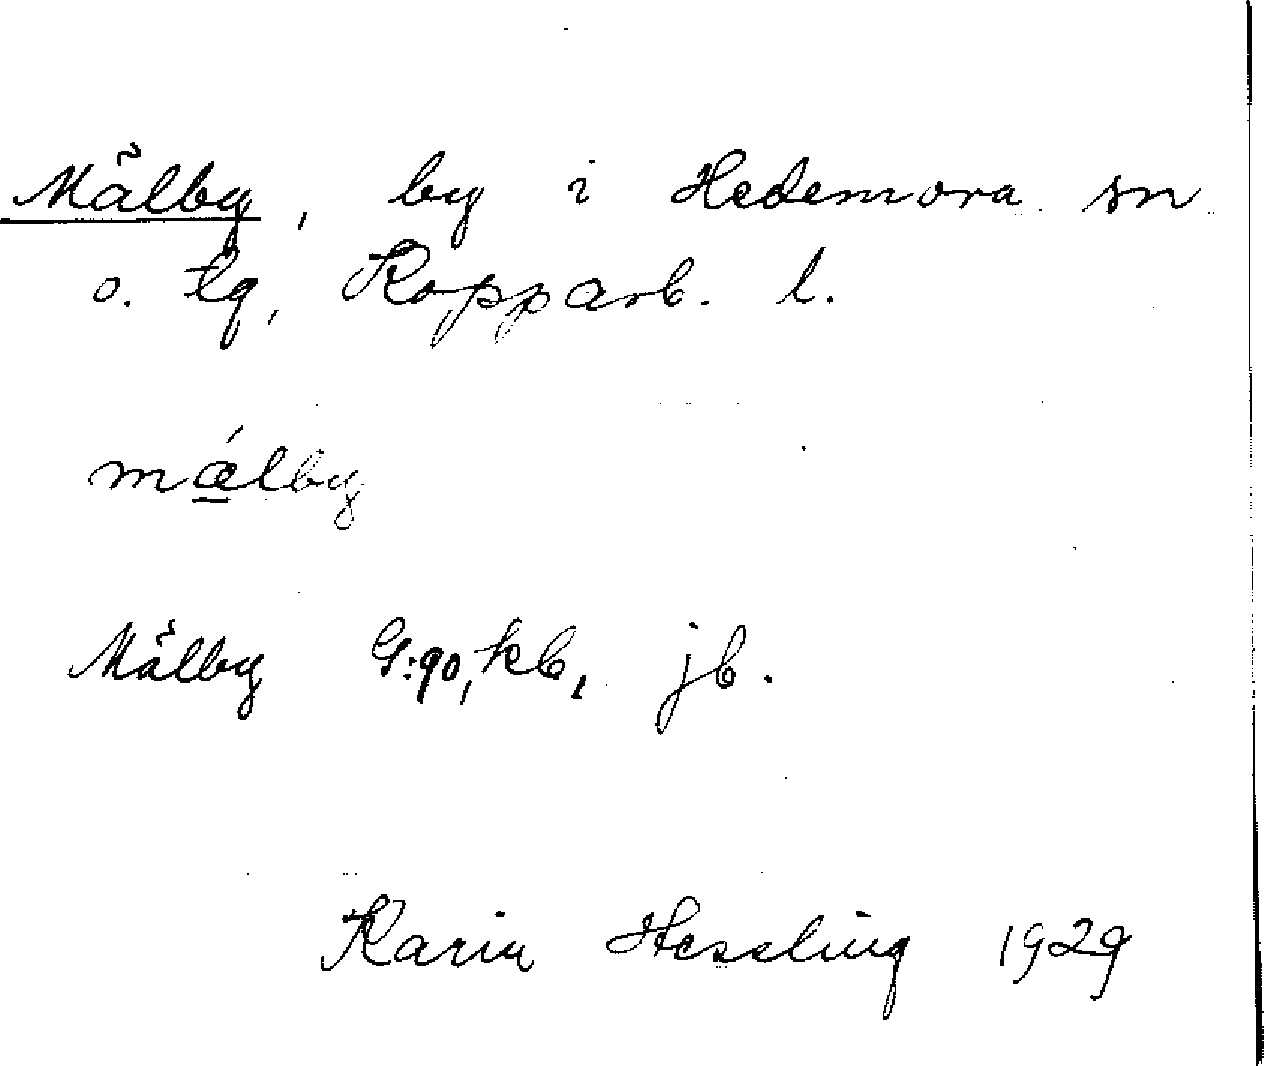 Mälby, by i Hedemora sn
o. tg, Kopparb. l.
mǽlby
Mälby G:90, kb, jb.
Karin Hessling 1929